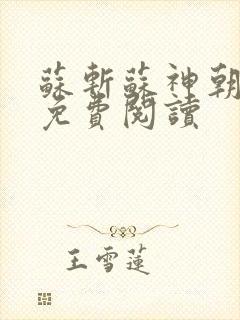 蘇斬蘇神朝
免費閱讀
王雪蓮